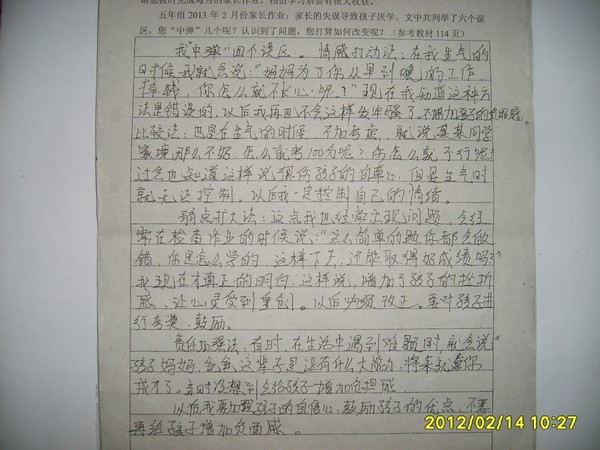 五年组 2013 年 2 月份家长作业：家长的失误导致孩子厌学，文中共列举了六个误
区，您“中弹”几个呢？认识到了问题，您打算如何改变呢？（参考教材 114 页）
我“中弹”四个误区。情感打动法：在我生气的
时候我就会说：“妈妈为了你从早到晚的工作，
挣钱，你怎么就不长心呢？”现在我知道这种方
法是错误的，以后我再也不会这样发牢骚了，不增加孩子的负担感。
比较法：也是在生气的时候，不加考虑，就说某某同学
家境那么不好怎么就考100分呢？你怎么就不行呢？
过会也知道这样说很伤孩子的自尊心，但是生气时
就无法控制。以后我一定控制自己的情绪。
弱点扩大法：这点我也经常出现问题，会经
常在检查作业的时候说：“这么简单的题你都会做
错，你是怎么学的，这样下去，还能取得好成绩吗？”
我现在才真正的明白，这样说，增加了孩子的挫折
感，让心灵受到重创。以后必须改正。要对孩子进
行夸奖、鼓励。
责任加强法：有时，在生活中遇到难题时，就会说“
孩子妈妈，爸爸这辈子是没有什么大能力，将来就靠你
成才了，当时没想到会给孩子增加负担感
以后我要加强孩子的自信心，鼓励孩子的优点，不要
再给孩子增加负面感。
2012/02/14 10:27